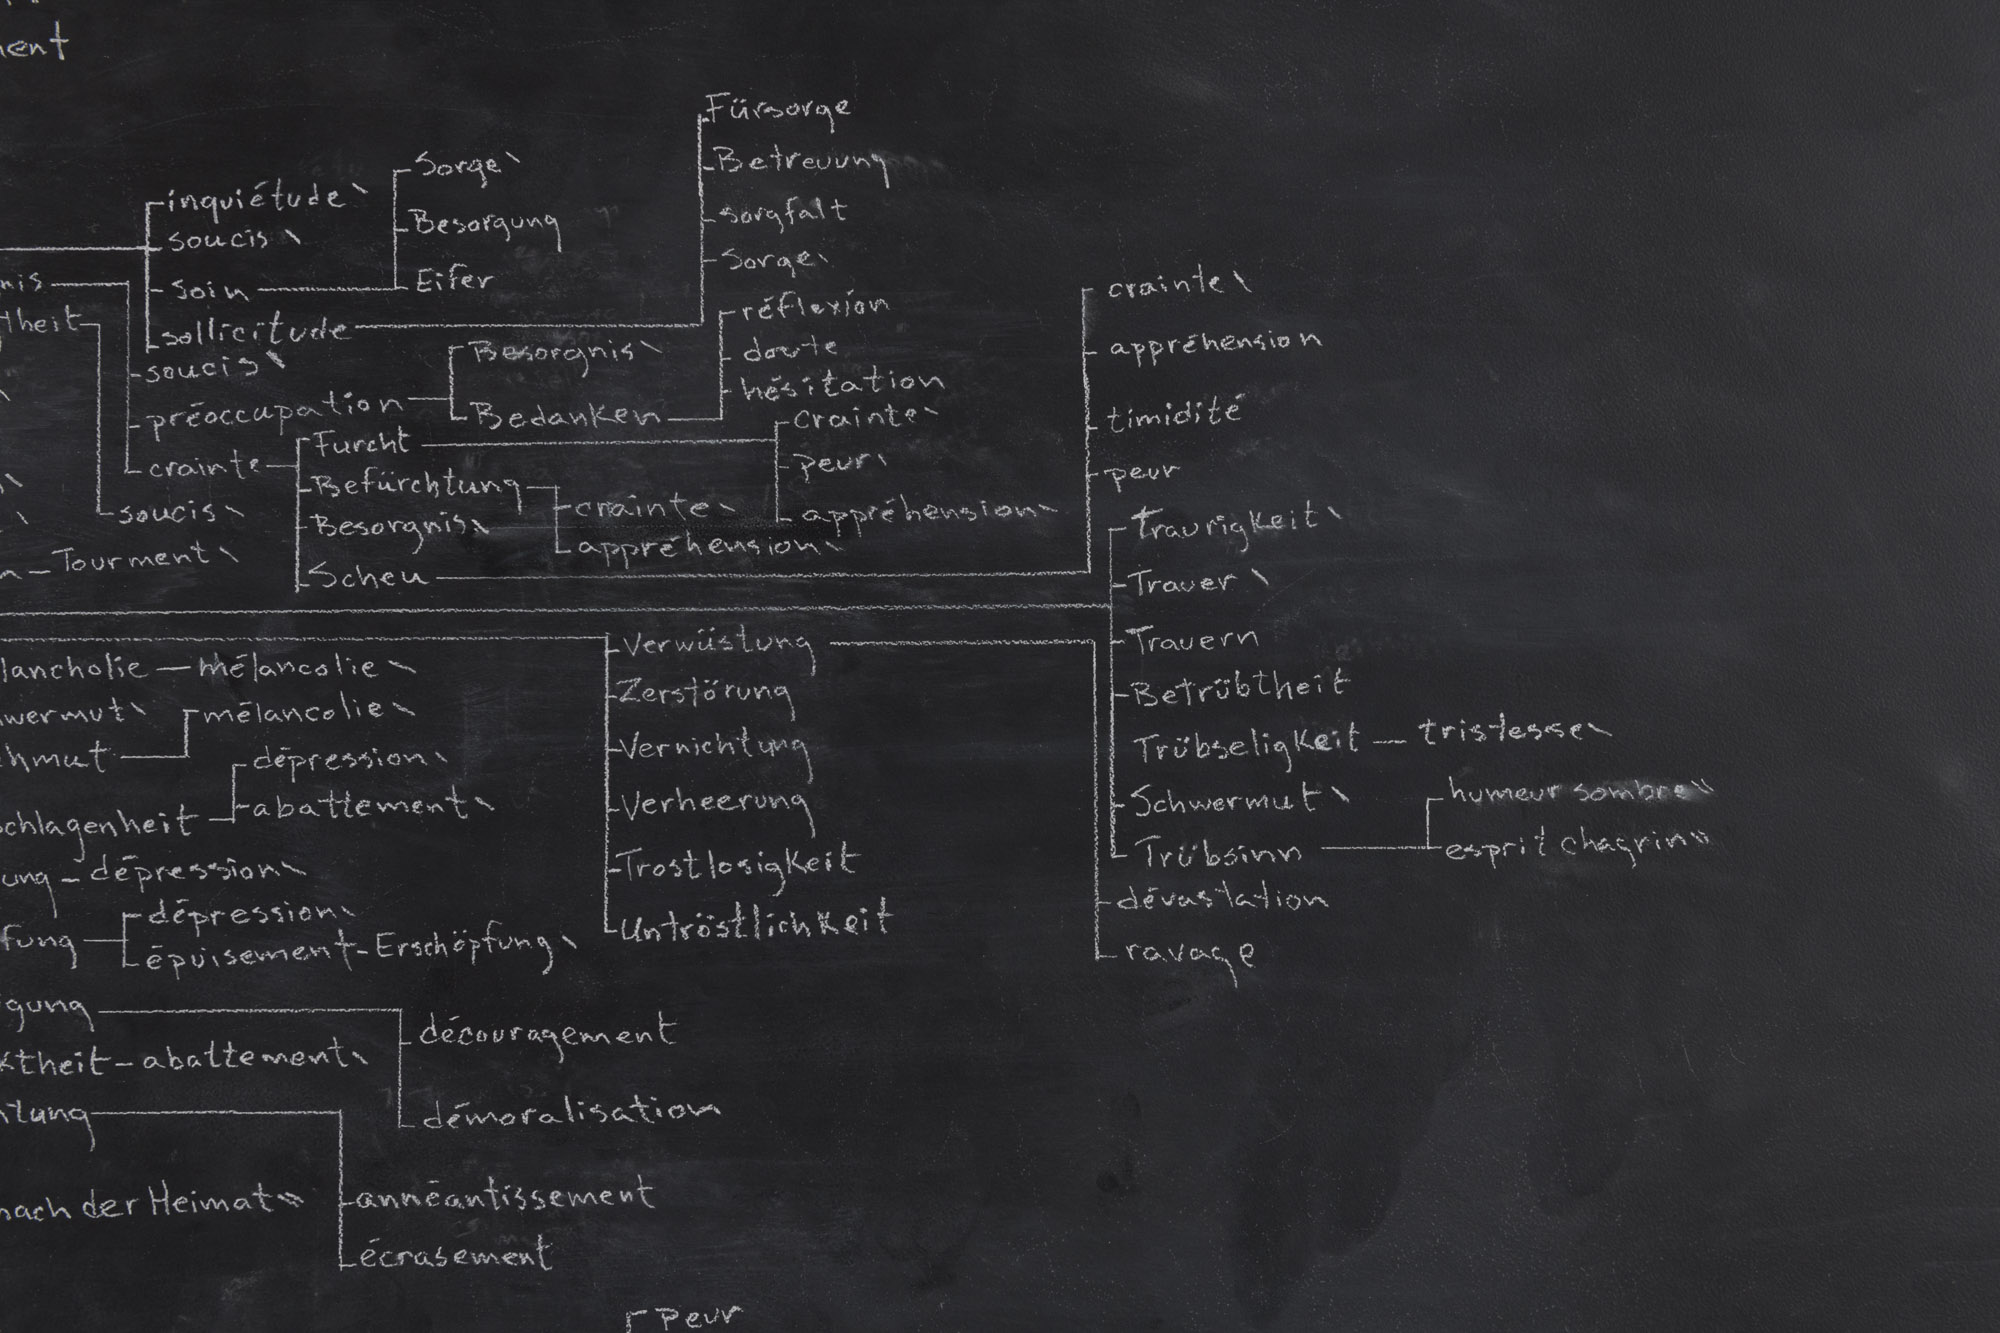 Fürsorge
Betreuung
Sorgfalt
Sorge
Sorge
Besorgung
Eifer
inquiétude
soucis
soin
sollicitude
soucis
préoccupation
crainte
soucis
Tourment
Besorgnis
Bedanken
réflexion
doute
hésitation
Furcht
Befürchtung
Besorgnis
Scheu
crainte
peur
appréhension
crainte
appréhension
crainte
appréhension
timidité
peur
Traurigkeit
Trauer
Trauern
Betrübtheit
Trübseligkeit — tristesse
Schwermut
Trübsinn
humeur sombre
esprit chagrin
dévastation
ravage
Verwüstung
Zerstörung
Vernichtung
Verheerung
Trostlosigkeit
Untröstlichkeit
mélancolie
mélancolie
dépression
abattement
dépression
dépression
épuisement - Erschöpfung
découragement
démoralisation
abattement
nach der Heimat
annéantissement
écrasement
Peur